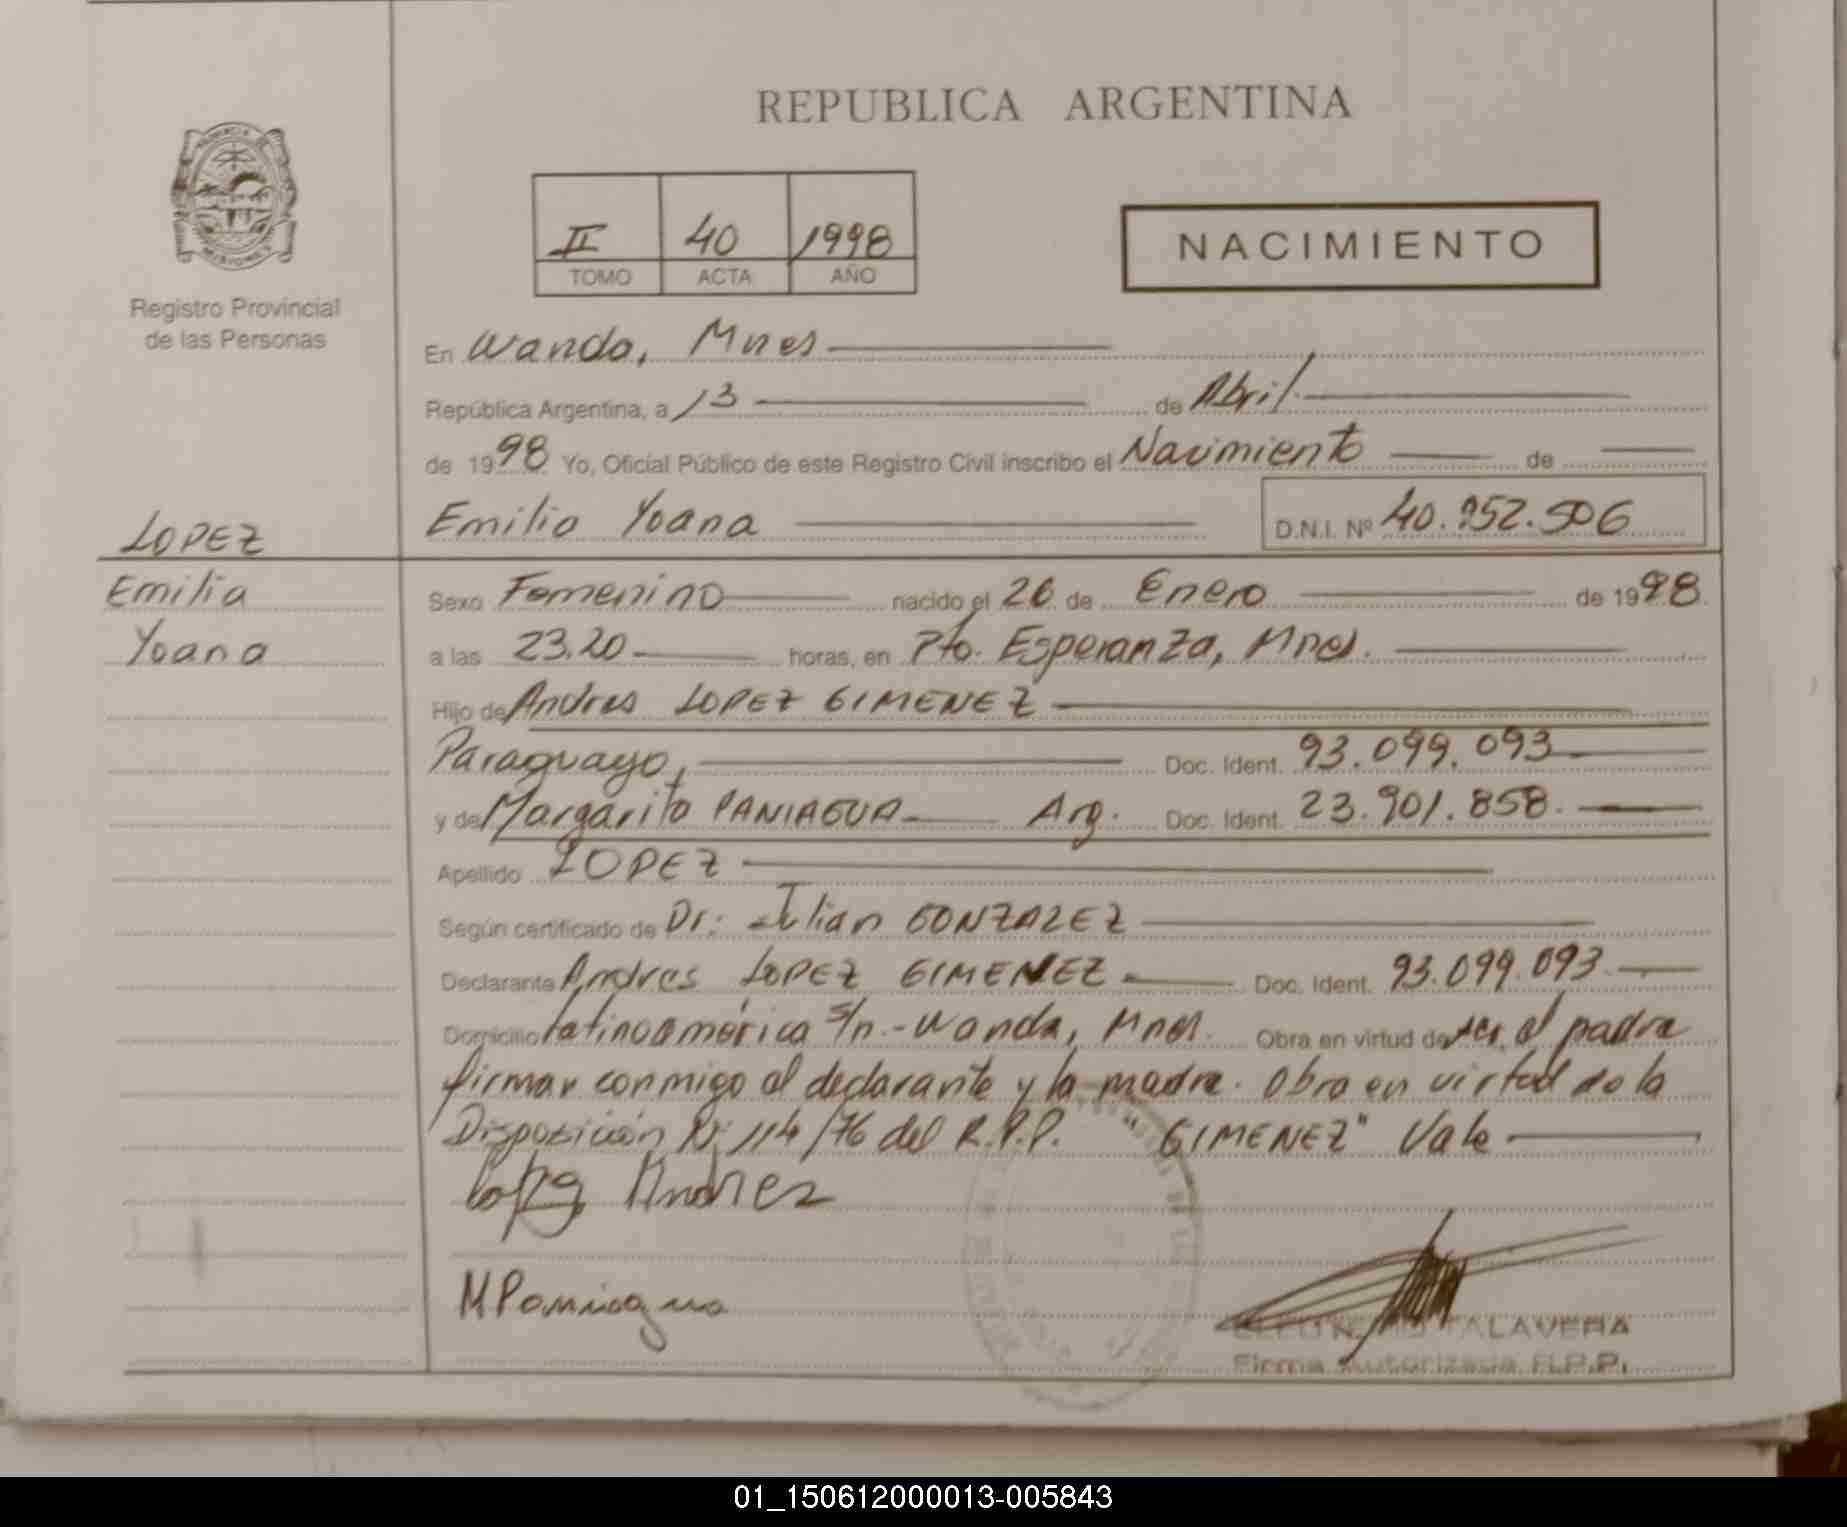 REPUBLICA ARGENTINA
II 40 1998
TOMO ACTA AÑO
NACIMIENTO
Registro Provincial
de las Personas
En Wanda, Mnes
República Argentina, a 13 de Abril.
de 1998 Yo, Oficial Público de este Registro Civil inscribo el Nacimiento de
Emilia Yoana D.N.I. Nº 40.952.506
LOPEZ
Emilia
Yoana
Sexo Femenino nacido el 26 de Enero de 1998
a las 23.20 horas, en Pto. Esperanza, Mnes.
Hijo de Andres LOPEZ GIMENEZ
Paraguayo, Doc. Ident. 93.099.093
y de Margarita PANIAGUA Arg. Doc. Ident. 23.901.858.
Apellido LOPEZ
Según certificado de Dr: Julian GONZALEZ
Declarante Andres LOPEZ GIMENEZ Doc. Ident. 93.099.093
Domicilio Latinoamérica S/n.- Wanda, Mnes. Obra en virtud de ser el padre
firman conmigo el declarante y la madre. Obra en virtud de la
Disposición Nº 114/76 del R.P.P. "GIMENEZ" Vale
Lopez Andres
M Paniagua
TALAVERA
Firma Autorizada R.P.P.
01_150612000013-005843